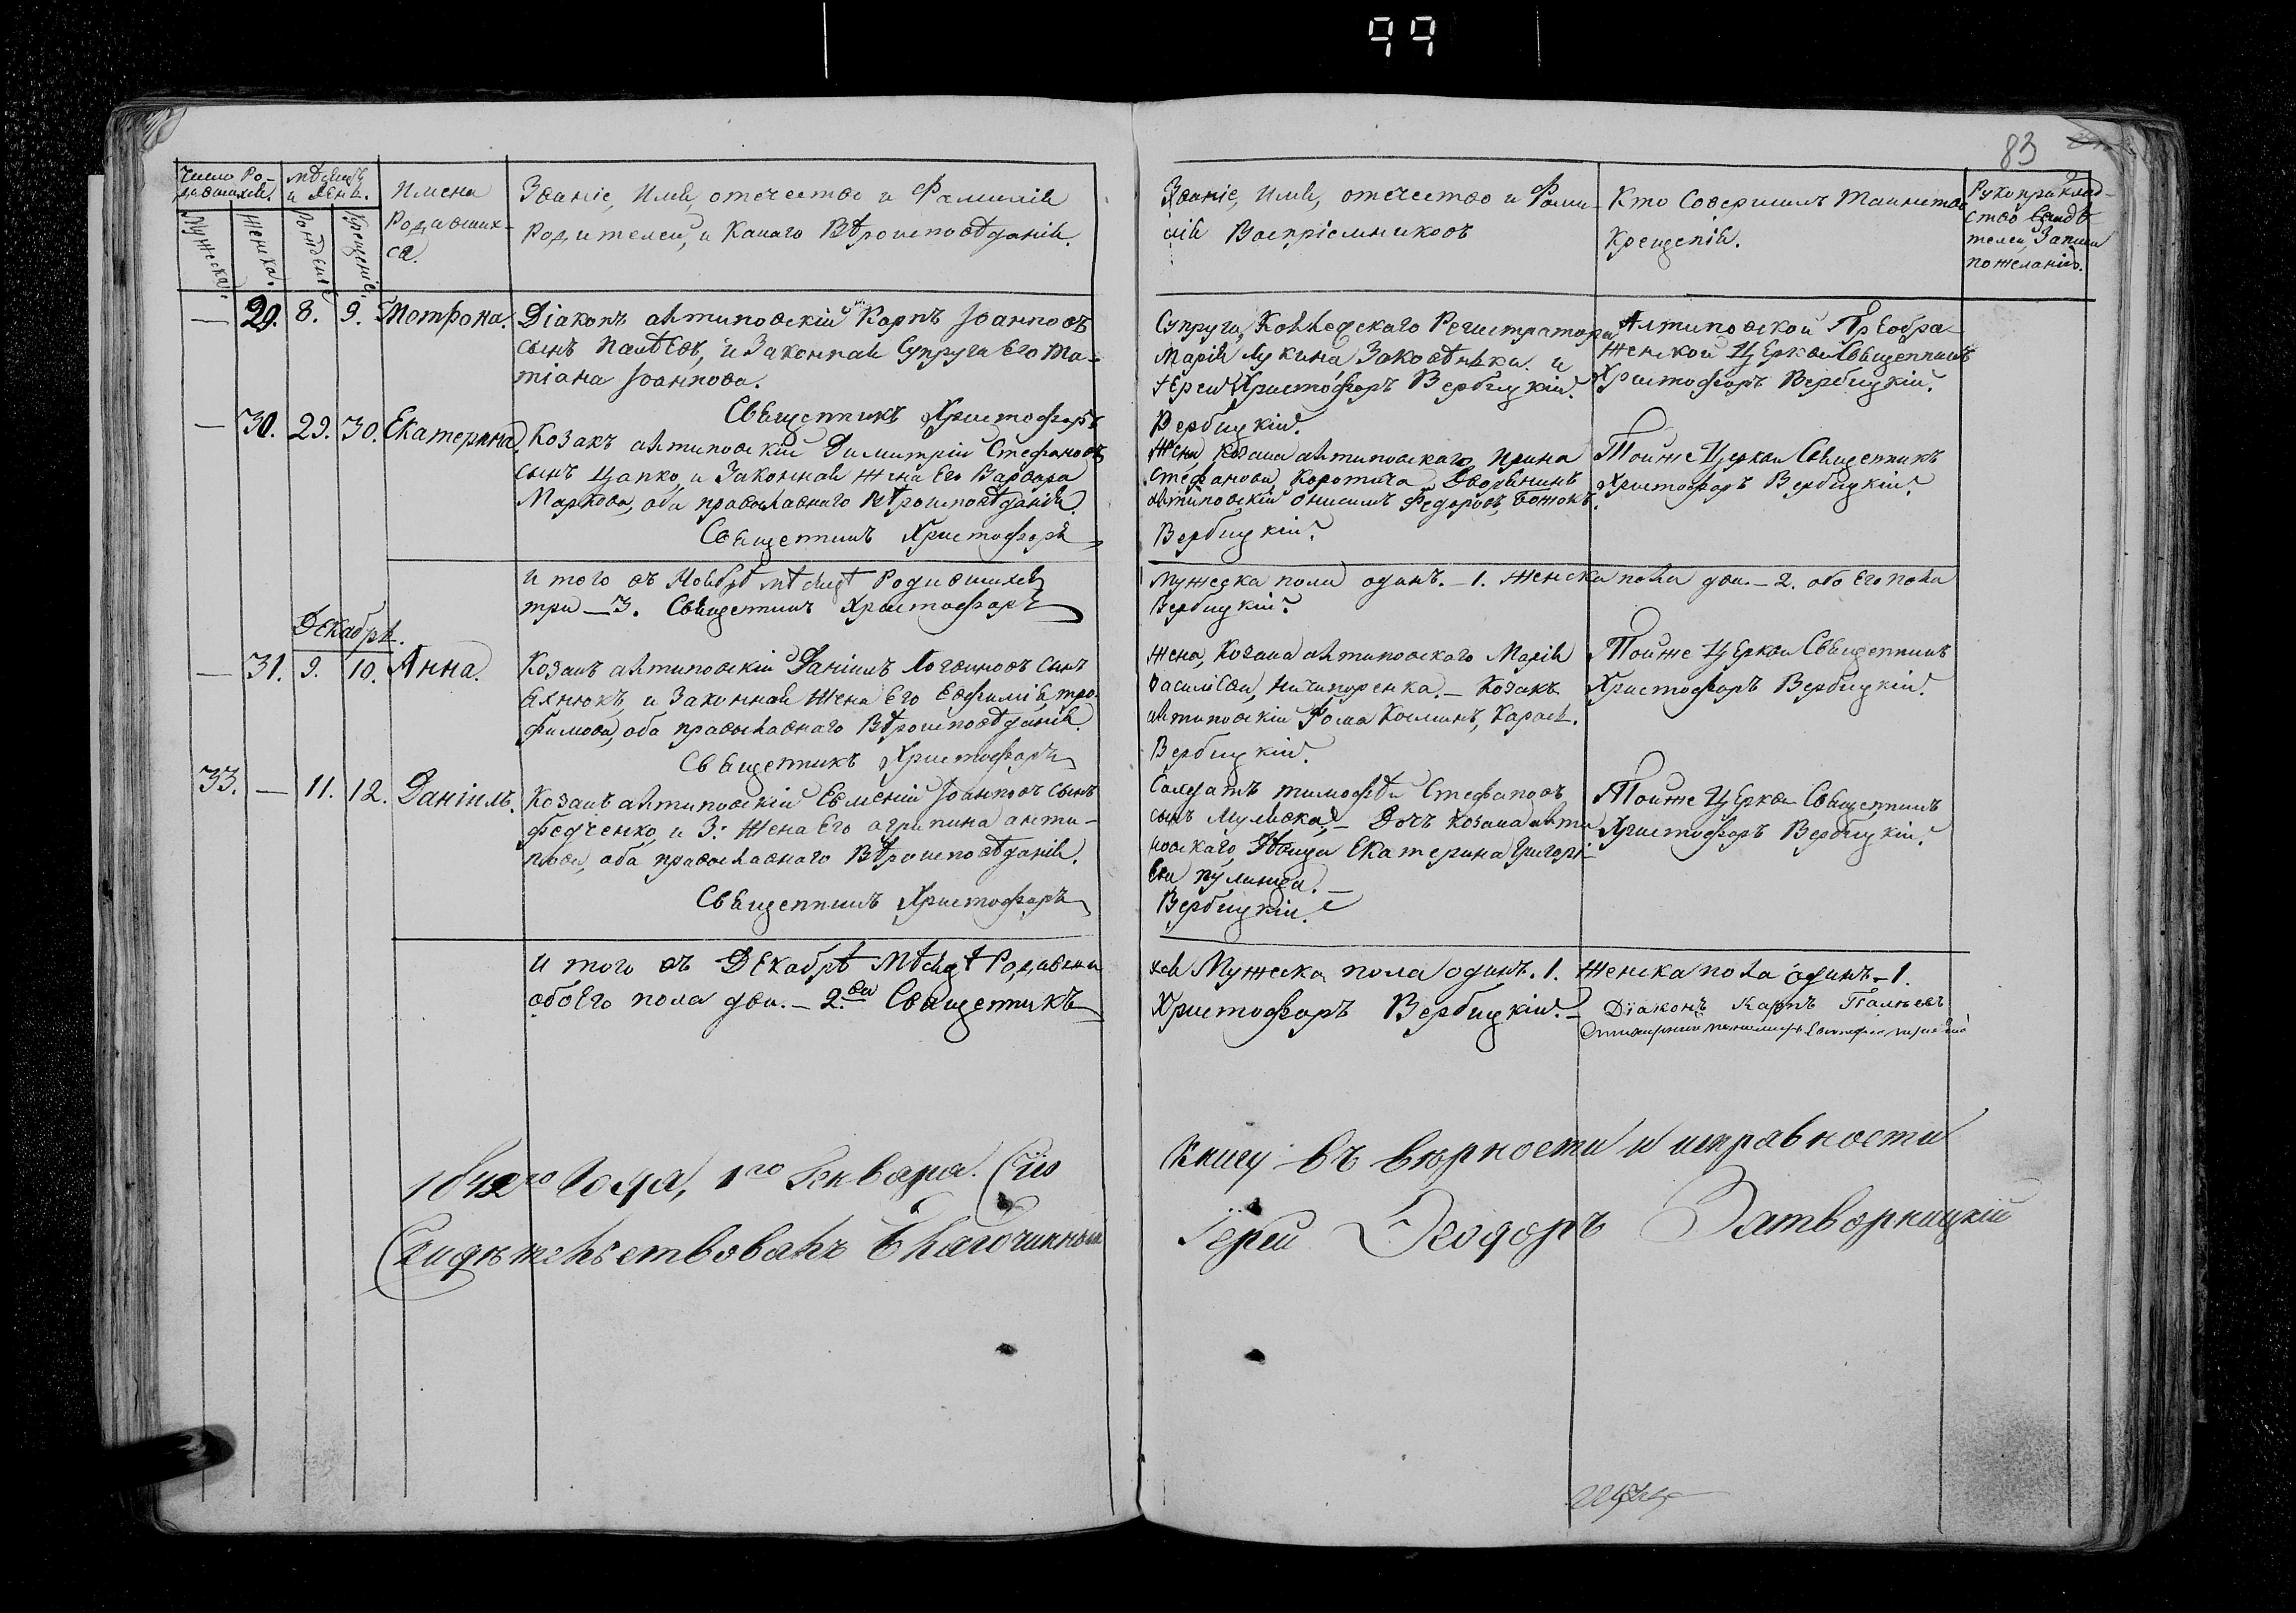 99
83
Число Ро-
дившихся.
Мѣсяцъ
и день.
Имена
Родивших-
ся.
Званіе, Имя, отечество и Фамилія
Родителей, и Какаго Вѣроисповѣданія.
Мужеска.
Женска.
Рожденіе
Крещеніе.
Званіе, Имя, отечество и Фами-
лія Воспріемниковъ
Кто Совершилъ Таинство
Крещенія.
Рукоприклад-
ство Свидѣ-
телей Записи
по желанію.
— 29. 8. 9. Мотрона.
Діаконъ антиповскій Карпъ Іоанновъ
сынъ Палѣевъ, и Законная Супруга Его Та-
тіана Іоаннова.
Священникъ Христофоръ
Супруга, Коллежскаго Регистратора
Марія Лукина Заковѣнка. и
Іерей Христофоръ Вербицкій.
Вербицкій.
Антиповской Преобра-
женской Церкви Священникъ
Христофоръ Вербицкій.
— 30. 29. 30. Екатерина.
Козакъ антиповскій Димитрій Стефановъ
сынъ Цапко, и Законная Жена Его Варвара
Маркова, оба православнаго Вѣроисповѣданія.
Священникъ Христофоръ
Жена Козака антиповскаго Ирина
Стефанова Коротича Дворянинъ
антиповскій Онисимъ Федоровъ Божокъ.
Вербицкій.
Тойже Церкви Священникъ
Христофоръ Вербицкій.
И того въ Ноябрѣ мѣсяцѣ Родившихся
три — 3. Священникъ Христофоръ
Мужеска пола одинъ. – 1. Женска пола два. – 2. обоего пола
Вербицкій.
Декабрь.
— 31. 9. 10. Анна.
Козакъ антиповскій Даніилъ Логвиновъ сынъ
Яхнюкъ, и Законная Жена Его Евфимія, тро-
фимова, оба православнаго Вѣроисповѣданія.
Священникъ Христофоръ
Жена, Козака антиповскаго Марія
Василіева, Ничипоренка. – Козакъ
антиповскій Фома Косминъ, Карась.
Вербицкій.
Тойже Церкви Священникъ
Христофоръ Вербицкій.
33. — 11. 12. Даніилъ.
Козакъ антиповскій Евменій Іоанновъ сынъ
Федченко, и З: Жена Его агрипина анти-
пова, оба православнаго Вѣроисповѣданія.
Священникъ Христофоръ
Солдатъ тимофѣй Стефановъ
сынъ – Дочъ Козака анти
новскаго, Екатерина Григорі-
ева
Вербицкій.
Тойже Церкви Священникъ
Христофоръ Вербицкій.
И того въ Декабрѣ Мѣсяцѣ Родивши
обоего пола два. – 2.ва Священникъ
хся Мужеска пола одинъ. 1. Женска пола одинъ – 1.
Христофоръ Вербицкій. –
Діаконъ Карпъ Палѣевъ
1842го Года, 1го Генваря. Сію
Книгу въ вѣрности и исправности
Свидѣтельствовалъ Благочинный
Іерей Ѳеодоръ Затворницкій